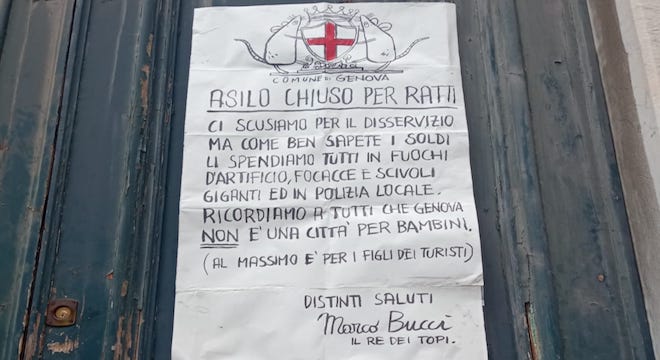 COMUNE DI GENOVA
ASILO CHIUSO PER RATTI
CI SCUSIAMO PER IL DISSERVIZIO
MA COME BEN SAPETE I SOLDI
LI SPENDIAMO TUTTI IN FUOCHI
D'ARTIFICIO, FOCACCE E SCIVOLI
GIGANTI ED IN POLIZIA LOCALE.
RICORDIAMO A TUTTI CHE GENOVA
NON E' UNA CITTA' PER BAMBINI.
(AL MASSIMO E' PER I FIGLI DEI TURISTI)
DISTINTI SALUTI
Marco Bucci
IL RE DEI TOPI.